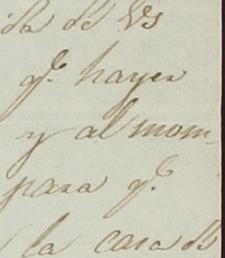 da de Vs
qe. hayer
y al mom-
para qe.
la casa de